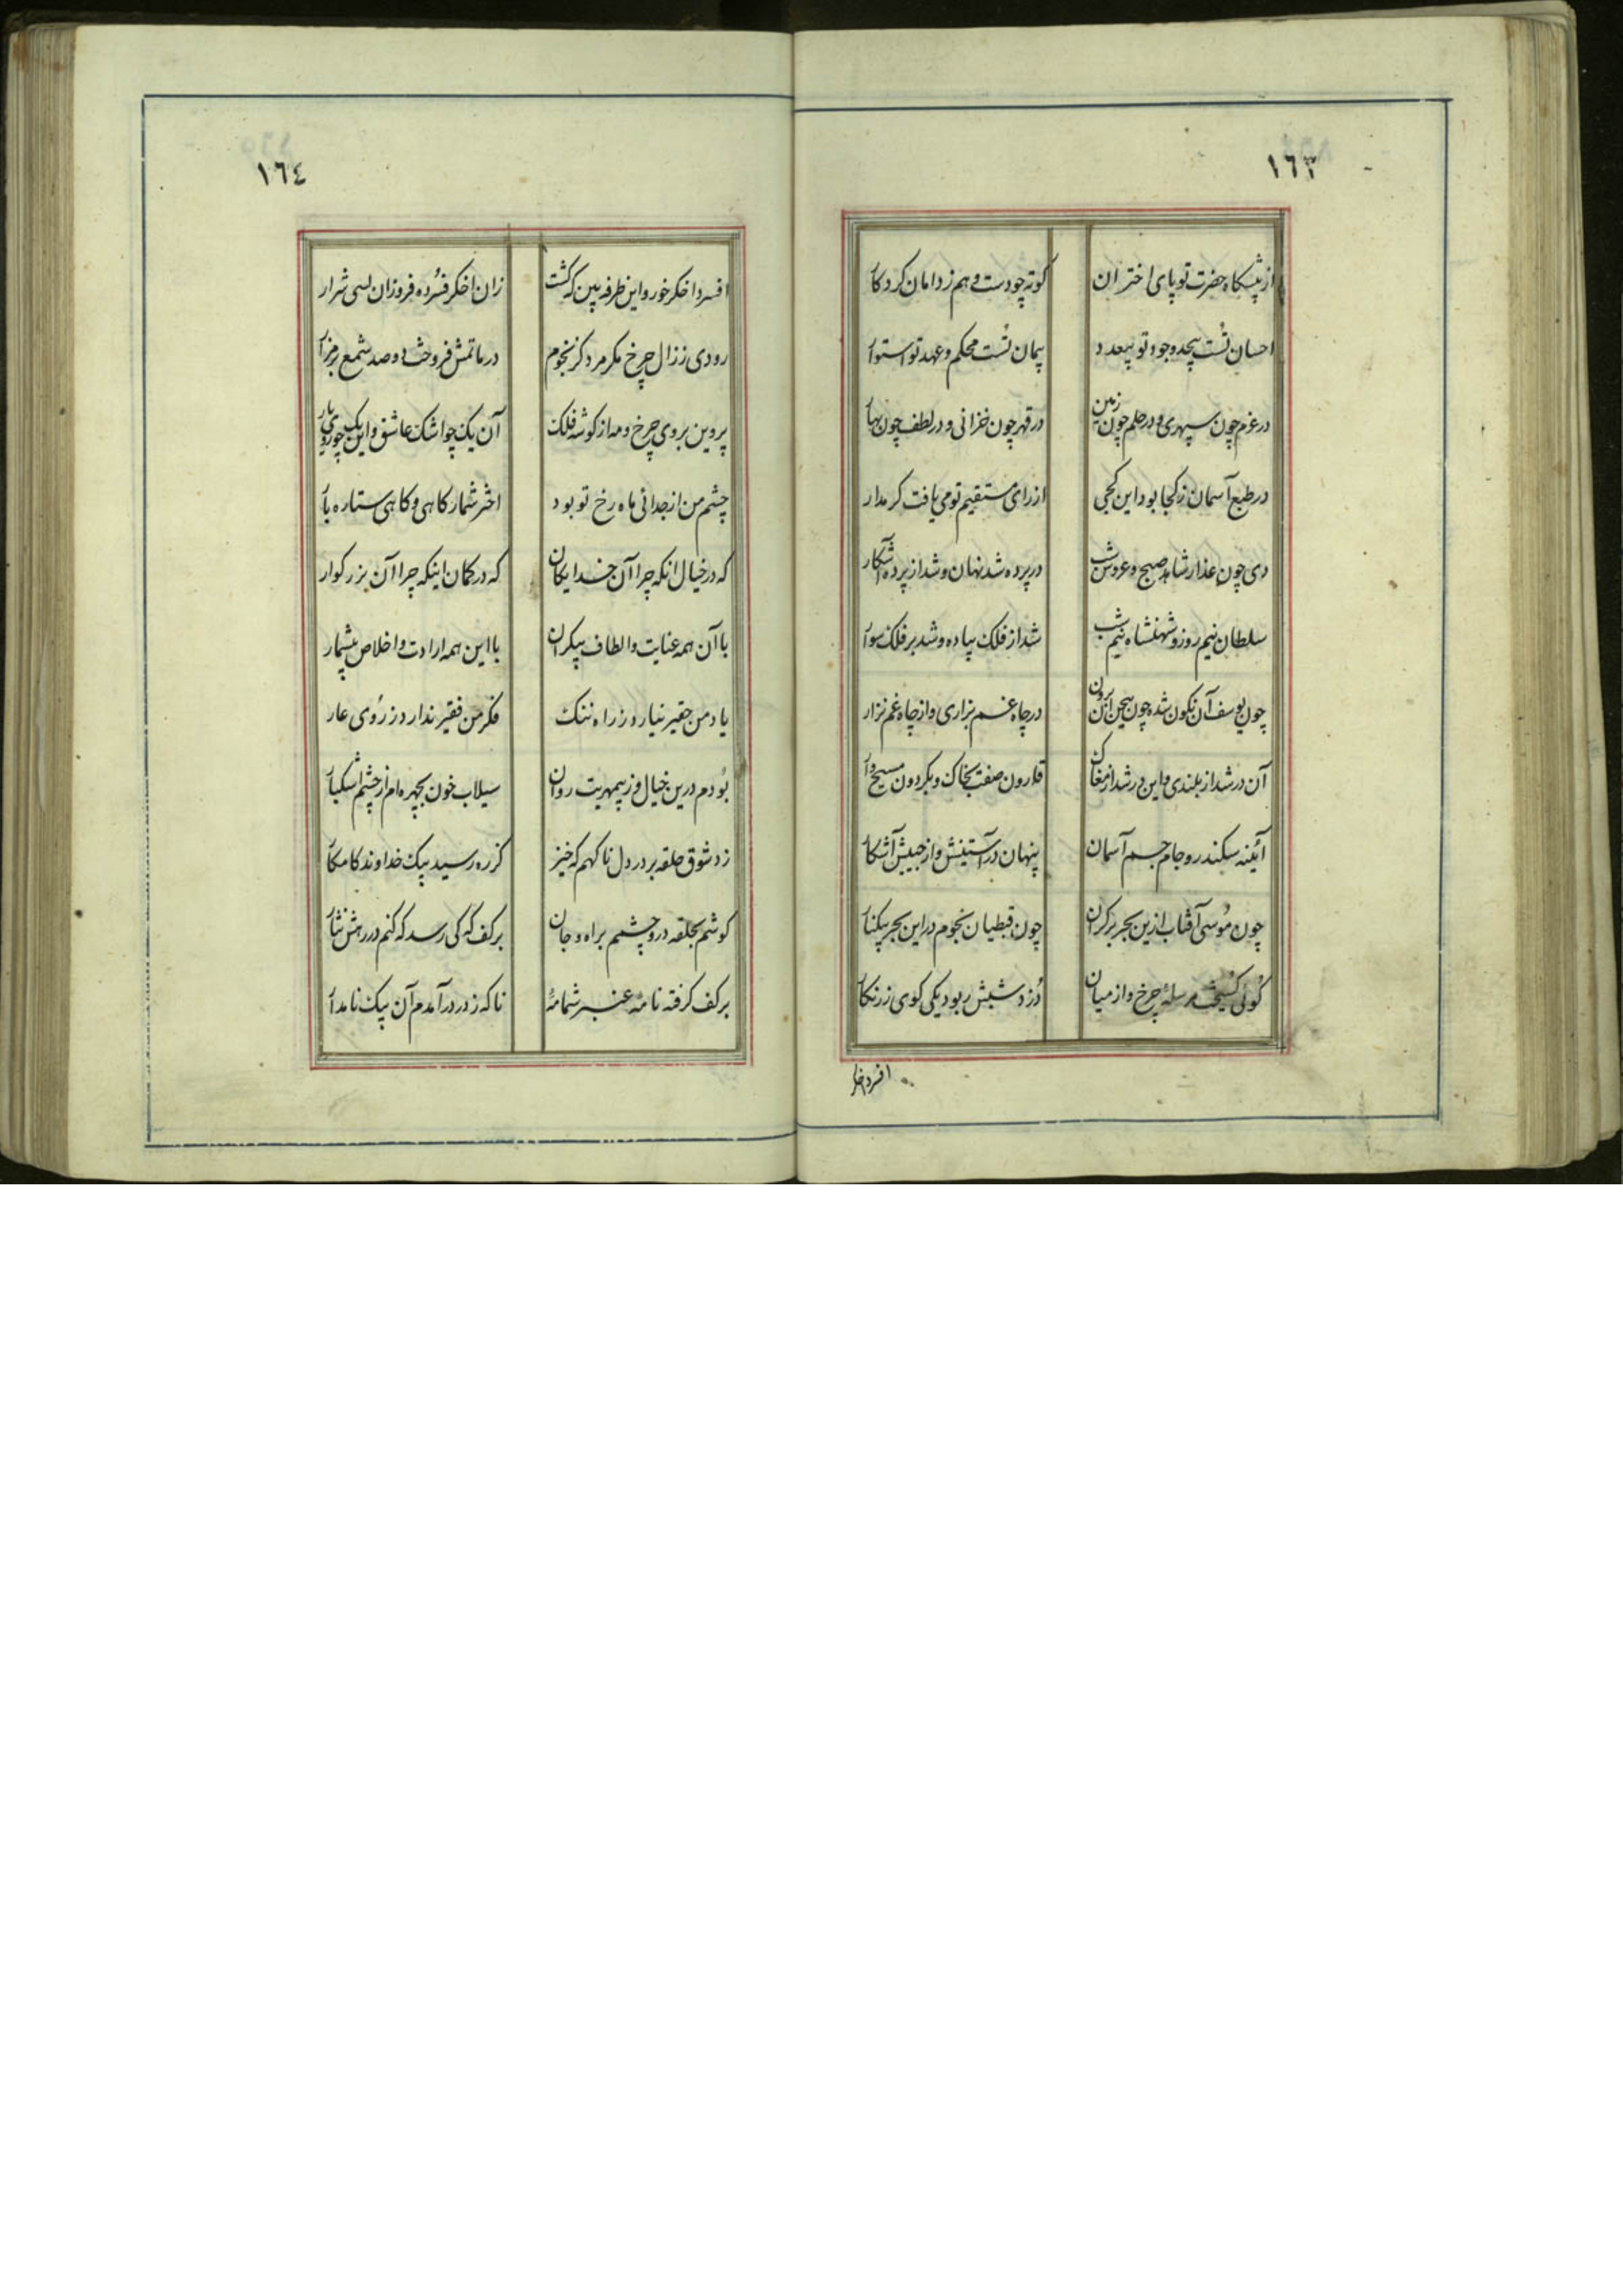 ١٦٣
از پیشکاه حضرت تو پای اختران
کوته چو دست وهم ز دامان کردکار
احسان تست بیحد و جود تو بیعدد
پیمان تست محکم و عهد تو استوار
در عزم چون سپهری و در حلم چون زمین
در قهر چون خزانی و در لطف چون بهار
در طبع آسمان ز کجا بود این کجی
از رای مستقیم تو می یافت کر مدار
دی چون عذار شاهد صبح و عروس شب
در پرده شد نهان و شد از پرده آشکار
سلطان نیم روز و شهنشاه نیم شب
شد از فلک پیاده و شد بر فلک سوار
چون یوسف آن نکون شده چون بیجن این برون
در چاه غم بزاری و از چاه غم نزار
آن در شد از بلندی و این بر شد از مغاک
قارون صفت بخاک و بکردون مسیح وار
آئینه سکندر و جام جم آسمان
پنهان در آستینش و از جیبش آشکار
چون موسی آفتاب ازین بحر بر کران
چون قبطیان نجوم در این بحر بیکنار
کوئی کسیخت مرسلهٔ چرخ و از میان
دزد شبش ربود یکی کوی زرنکار
افسرد اخکر
١٦٤
افسرد اخکر خور و این طرفه بین که کشت
زان اخکر فسرده فروزان بسی شرار
رودی ز زال چرخ مکر مرد کز نجوم
در ماتمش فروخت دو صد شمع بر مزار
پروین بروی چرخ و مه از کوشه فلک
آن یک چو اشک عاشق و این یک چو روی یار
چشم من از جدائی ماه رخ تو بود
اختر شمار کاهی و کاهی ستاره بار
که در خیال انکه چرا آن خدایکان
که در کمان اینکه چرا آن بزرکوار
با آن همه عنایت و الطاف بیکران
با این همه ارادت و اخلاص بیشمار
یاد من حقیر نیارد ز راه ننک
فکر من فقیر ندارد ز روی عار
بودم درین خیال و ز بیمهریت روان
سیلاب خون بچهره ام از چشم اشکبار
زد شوق حلقه بر در دل ناکهم که خیز
کز ره رسید پیک خداوند کامکار
کوشم بحلقه در و چشمم براه و جان
بر کف که کی رسد که کنم در رهش نثار
ناکه ز در در آمدم آن پیک نامدار
بر کف کرفته نامهٔ عنبر شمامهٔ